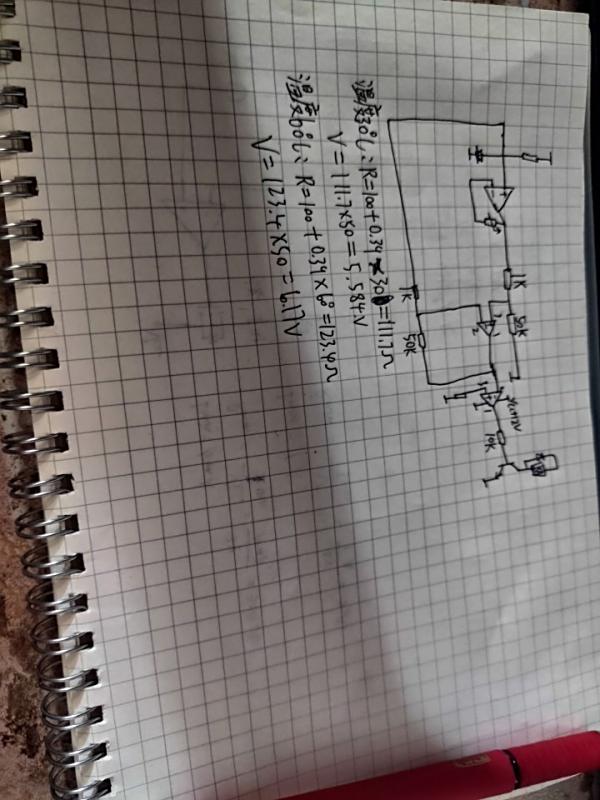 1K
50K
1K
50K
10K
温度30℃: R=100+0.39×30=111.7Ω
V=111.7×50=5.584V
温度60℃: R=100+0.39×60=123.4Ω
V=123.4×50=6.17V